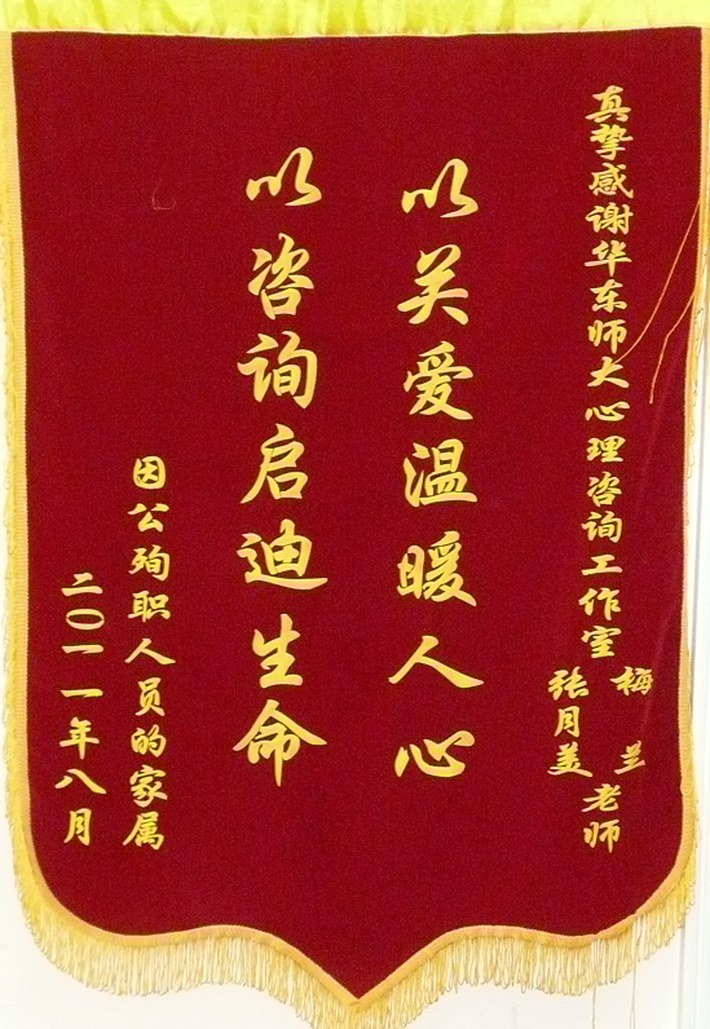 真挚感谢华东师大心理咨询工作室
梅兰
张月美
老师
以关爱温暖人心
以咨询启迪生命
因公殉职人员的家属
二〇一一年八月